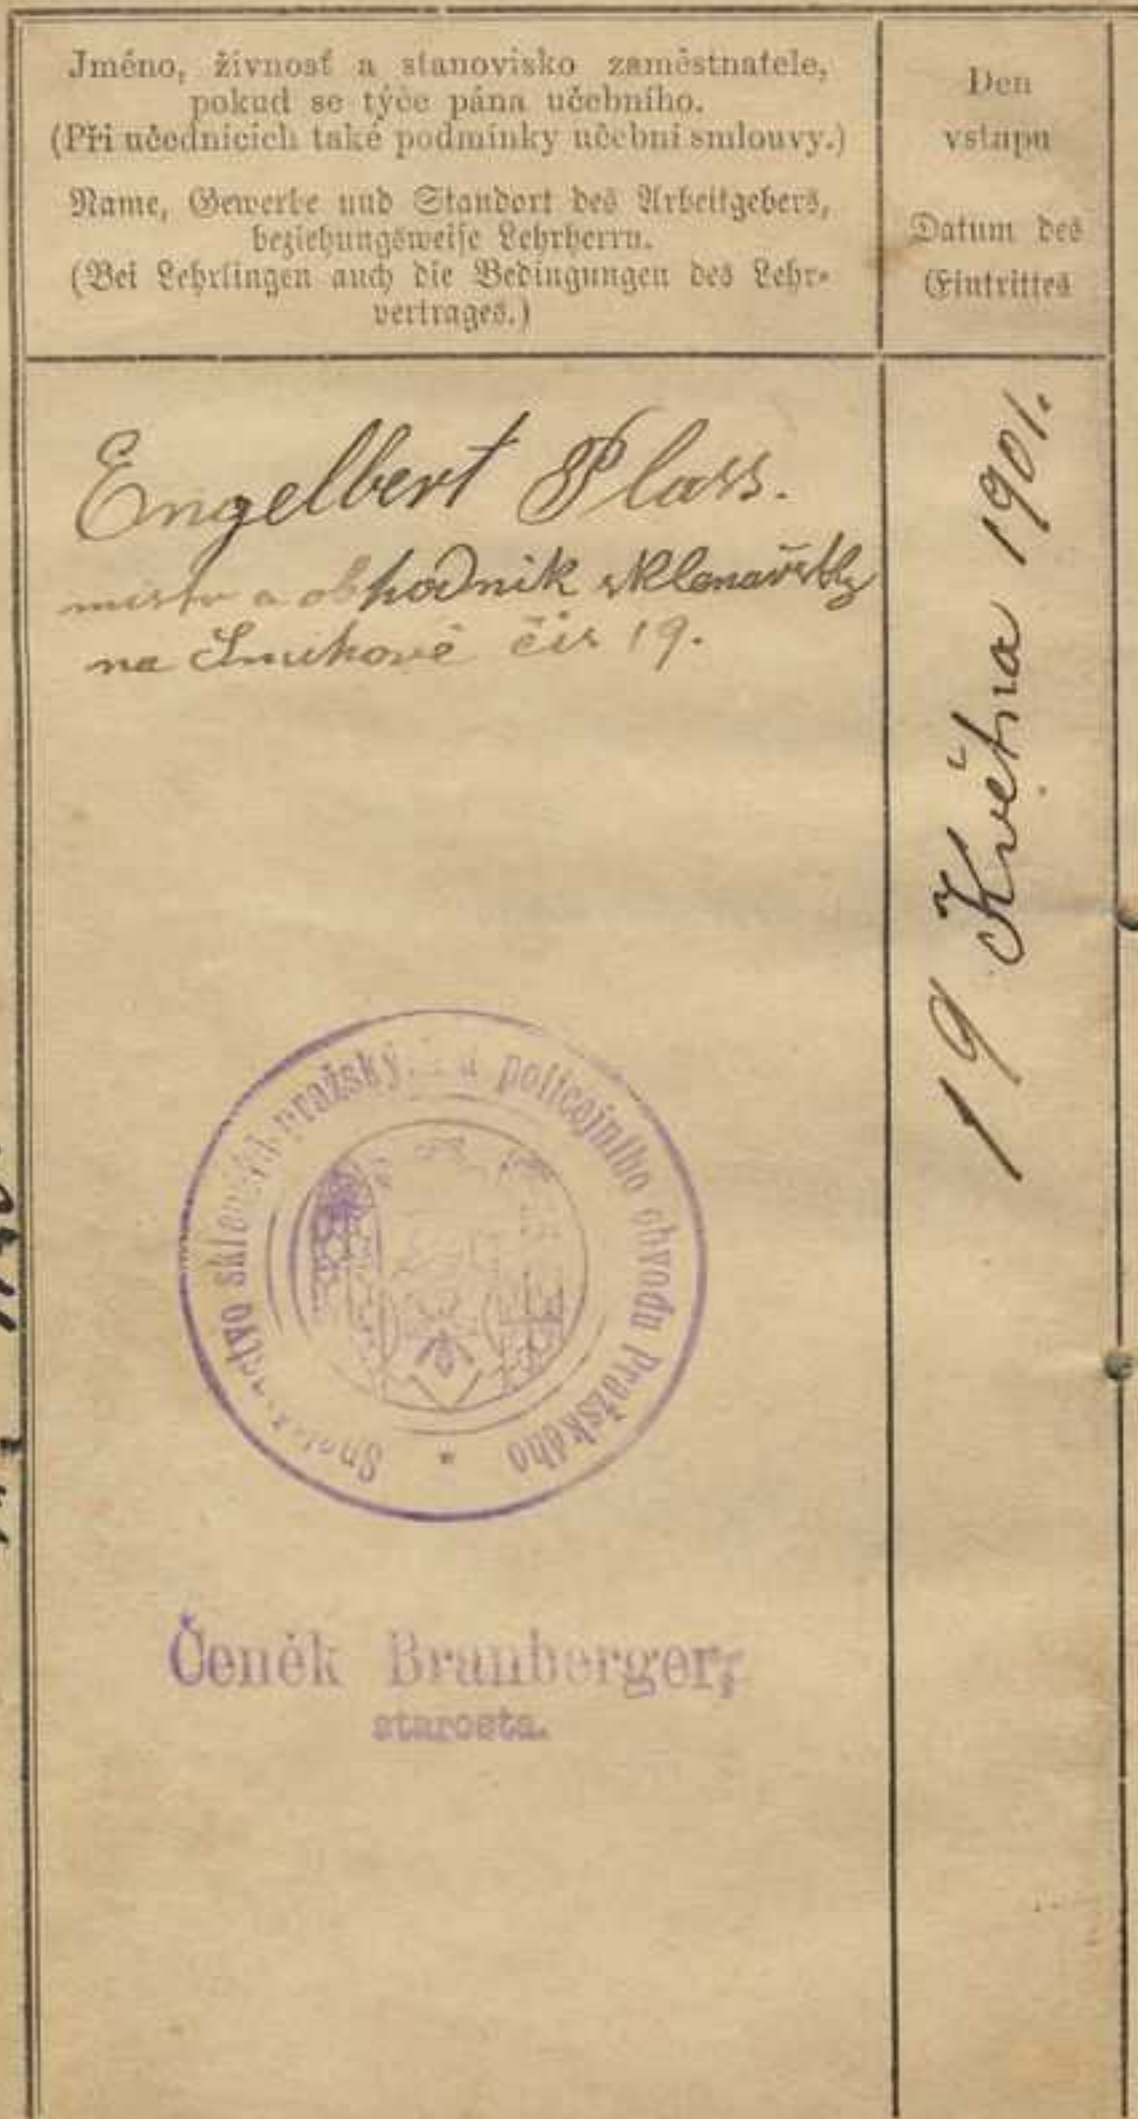 Jméno, živnosť a stanovisko zaměstnatele,
pokud se týče pána učebního.
(Při učednících také podmínky učební smlouvy.)
Name, Gewerbe und Standort des Arbeitgebers,
beziehungsweise Lehrherrn.
(Bei Lehrlingen auch die Bedingungen des Lehr-
vertrages.)
Den
vstupu
Datum des
Eintrittes
Engelbert Plass.
mistr a obhodnik
na Smíchově čís 19.
19 Května 1901.
pražský policejního obvodu Pražského
Čeněk Branberger,
starosta.